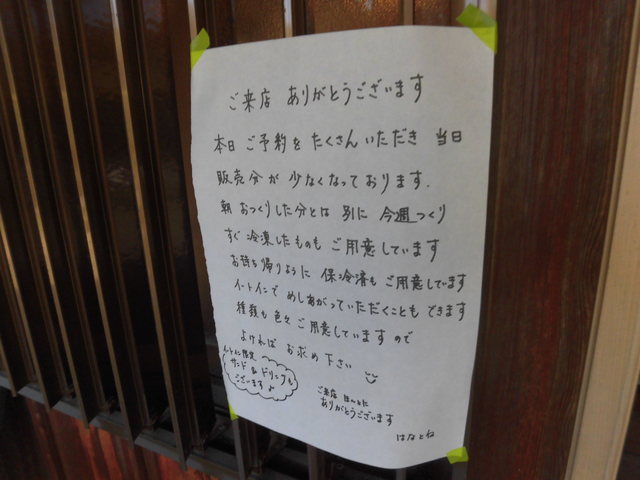 ご来店 ありがとうございます
本日 ご予約を たくさん いただき 当日
販売分が 少なくなっております.
朝 おつくりした分とは 別に 今週つくり
すぐ 冷凍したものも ご用意しています
お持ち帰りように 保冷剤も ご用意しています
イートインで めしあがっていただくことも できます
種類も 色々 ご用意していますので
よければ お求め 下さい
イートイン限定
サンド & ドリンクも
ございます♪
ご来店 ほんとに
ありがとうございます
はなとね